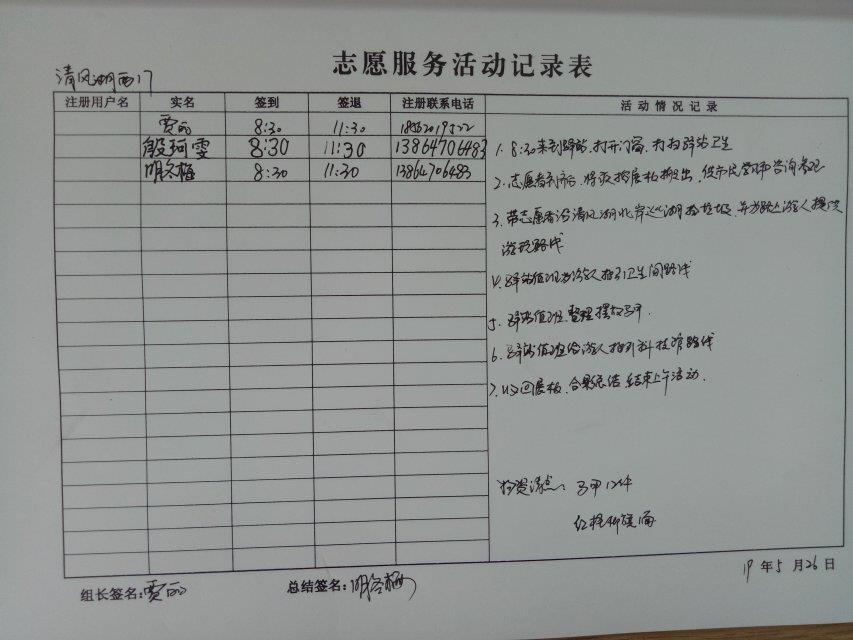 志愿服务活动记录表
清风湖西门
注册用户名 实名 签到 签退 注册联系电话 活动情况记录
贾丽 8:30 11:30
殷珂雯 8:30 11:30 13864706483
明冬梅 8:30 11:30 13864706483
1. 8:30来到驿站,打开门窗,打扫驿站卫生
2. 志愿者到齐后,将 展板搬出,供市民 咨询
3. 带志愿者沿清风湖北岸巡湖捡垃圾,并为路上游人提供
游玩路线
4. 驿站值班为游人指引卫生间路线
5. 驿站值班,整理摆放马甲.
6. 驿站值班给游人指引科技馆路线
7. 收回展板,合影总结,结束上午活动.
物资清点: 马甲12件
组长签名:贾丽 总结签名:明冬梅 19年5月26日